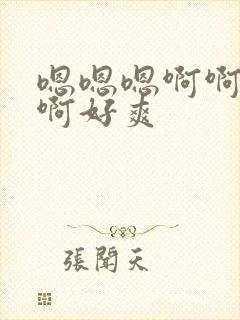 嗯嗯嗯啊啊
啊好爽
張聞天